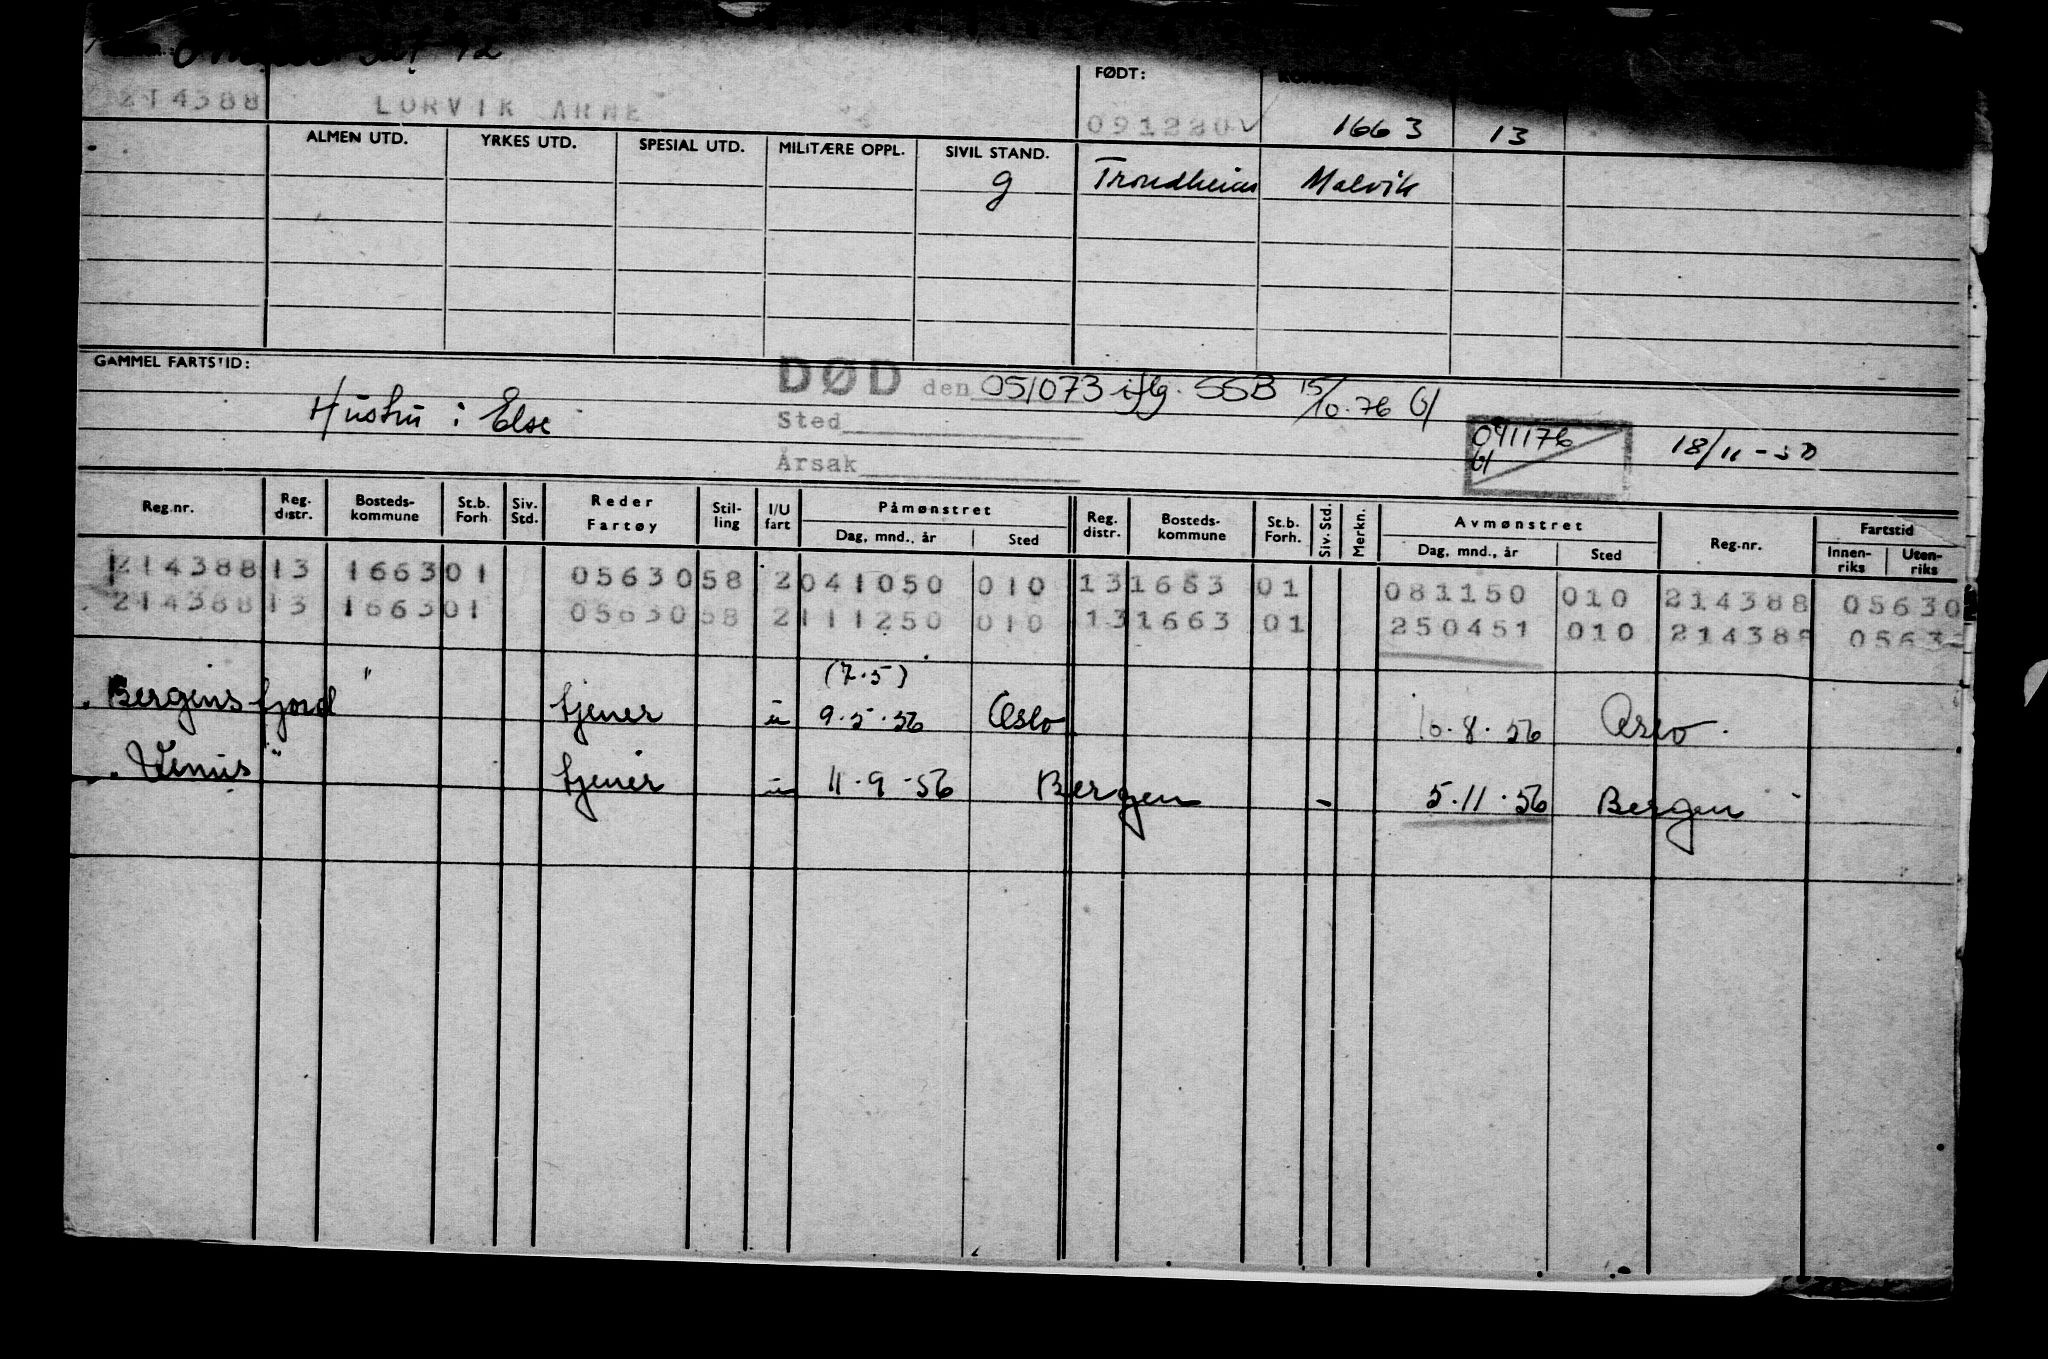 FØDT:
214388 LORVIK ARNE 091220 1663 13
ALMEN UTD. YRKES UTD. SPESIAL UTD. MILITÆRE OPPL. SIVIL STAND.
g Trondheim Malvik
GAMMEL FARTSTID:
DØD den 051073 iflg. SSB 15/10-76
Hustru : Else
Sted
041176
18/11-50
Årsak
Reg.nr. Reg. distr. Bosteds-kommune St.b. Forh. Siv. Std. Reder Fartøy Stil-ling I/U fart Påmønstret Dag, mnd., år Sted Reg. distr. Bosteds-kommune St.b. Forh. Siv. Std. Merkn. Avmønstret Dag, mnd., år Sted Reg.nr. Fartstid Innen-riks Uten-riks
214388 13 1663 01 05630 58 2 041050 010 13 1663 01 081150 010 214388 05630
214388 13 1663 01 05630 58 2 111250 010 13 1663 01 250451 010 214388 0563
(7.5)
"Bergensfjord" tjener u 9.5.56 Oslo 10.8.56 Oslo.
"Venus" tjener u 11-9-56 Bergen - 5.11.56 Bergen